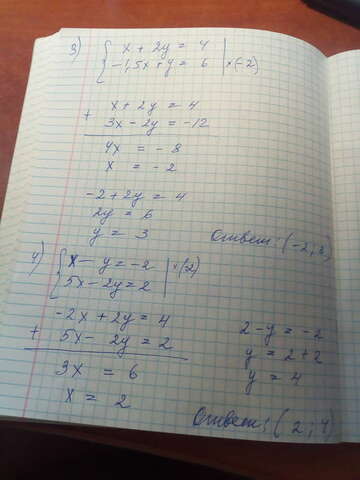 3) { x + 2y = 4
-1,5x + y = 6 | x(-2)
+ x + 2y = 4
3x - 2y = -12
4x = -8
x = -2
-2 + 2y = 4
2y = 6
y = 3
Ответ: (-2; 3)
4) { x - y = -2 | x(2)
5x - 2y = 2
-2x + 2y = 4
+ 5x - 2y = 2
3x = 6
x = 2
2 - y = -2
y = 2 + 2
y = 4
Ответ: (2; 4)